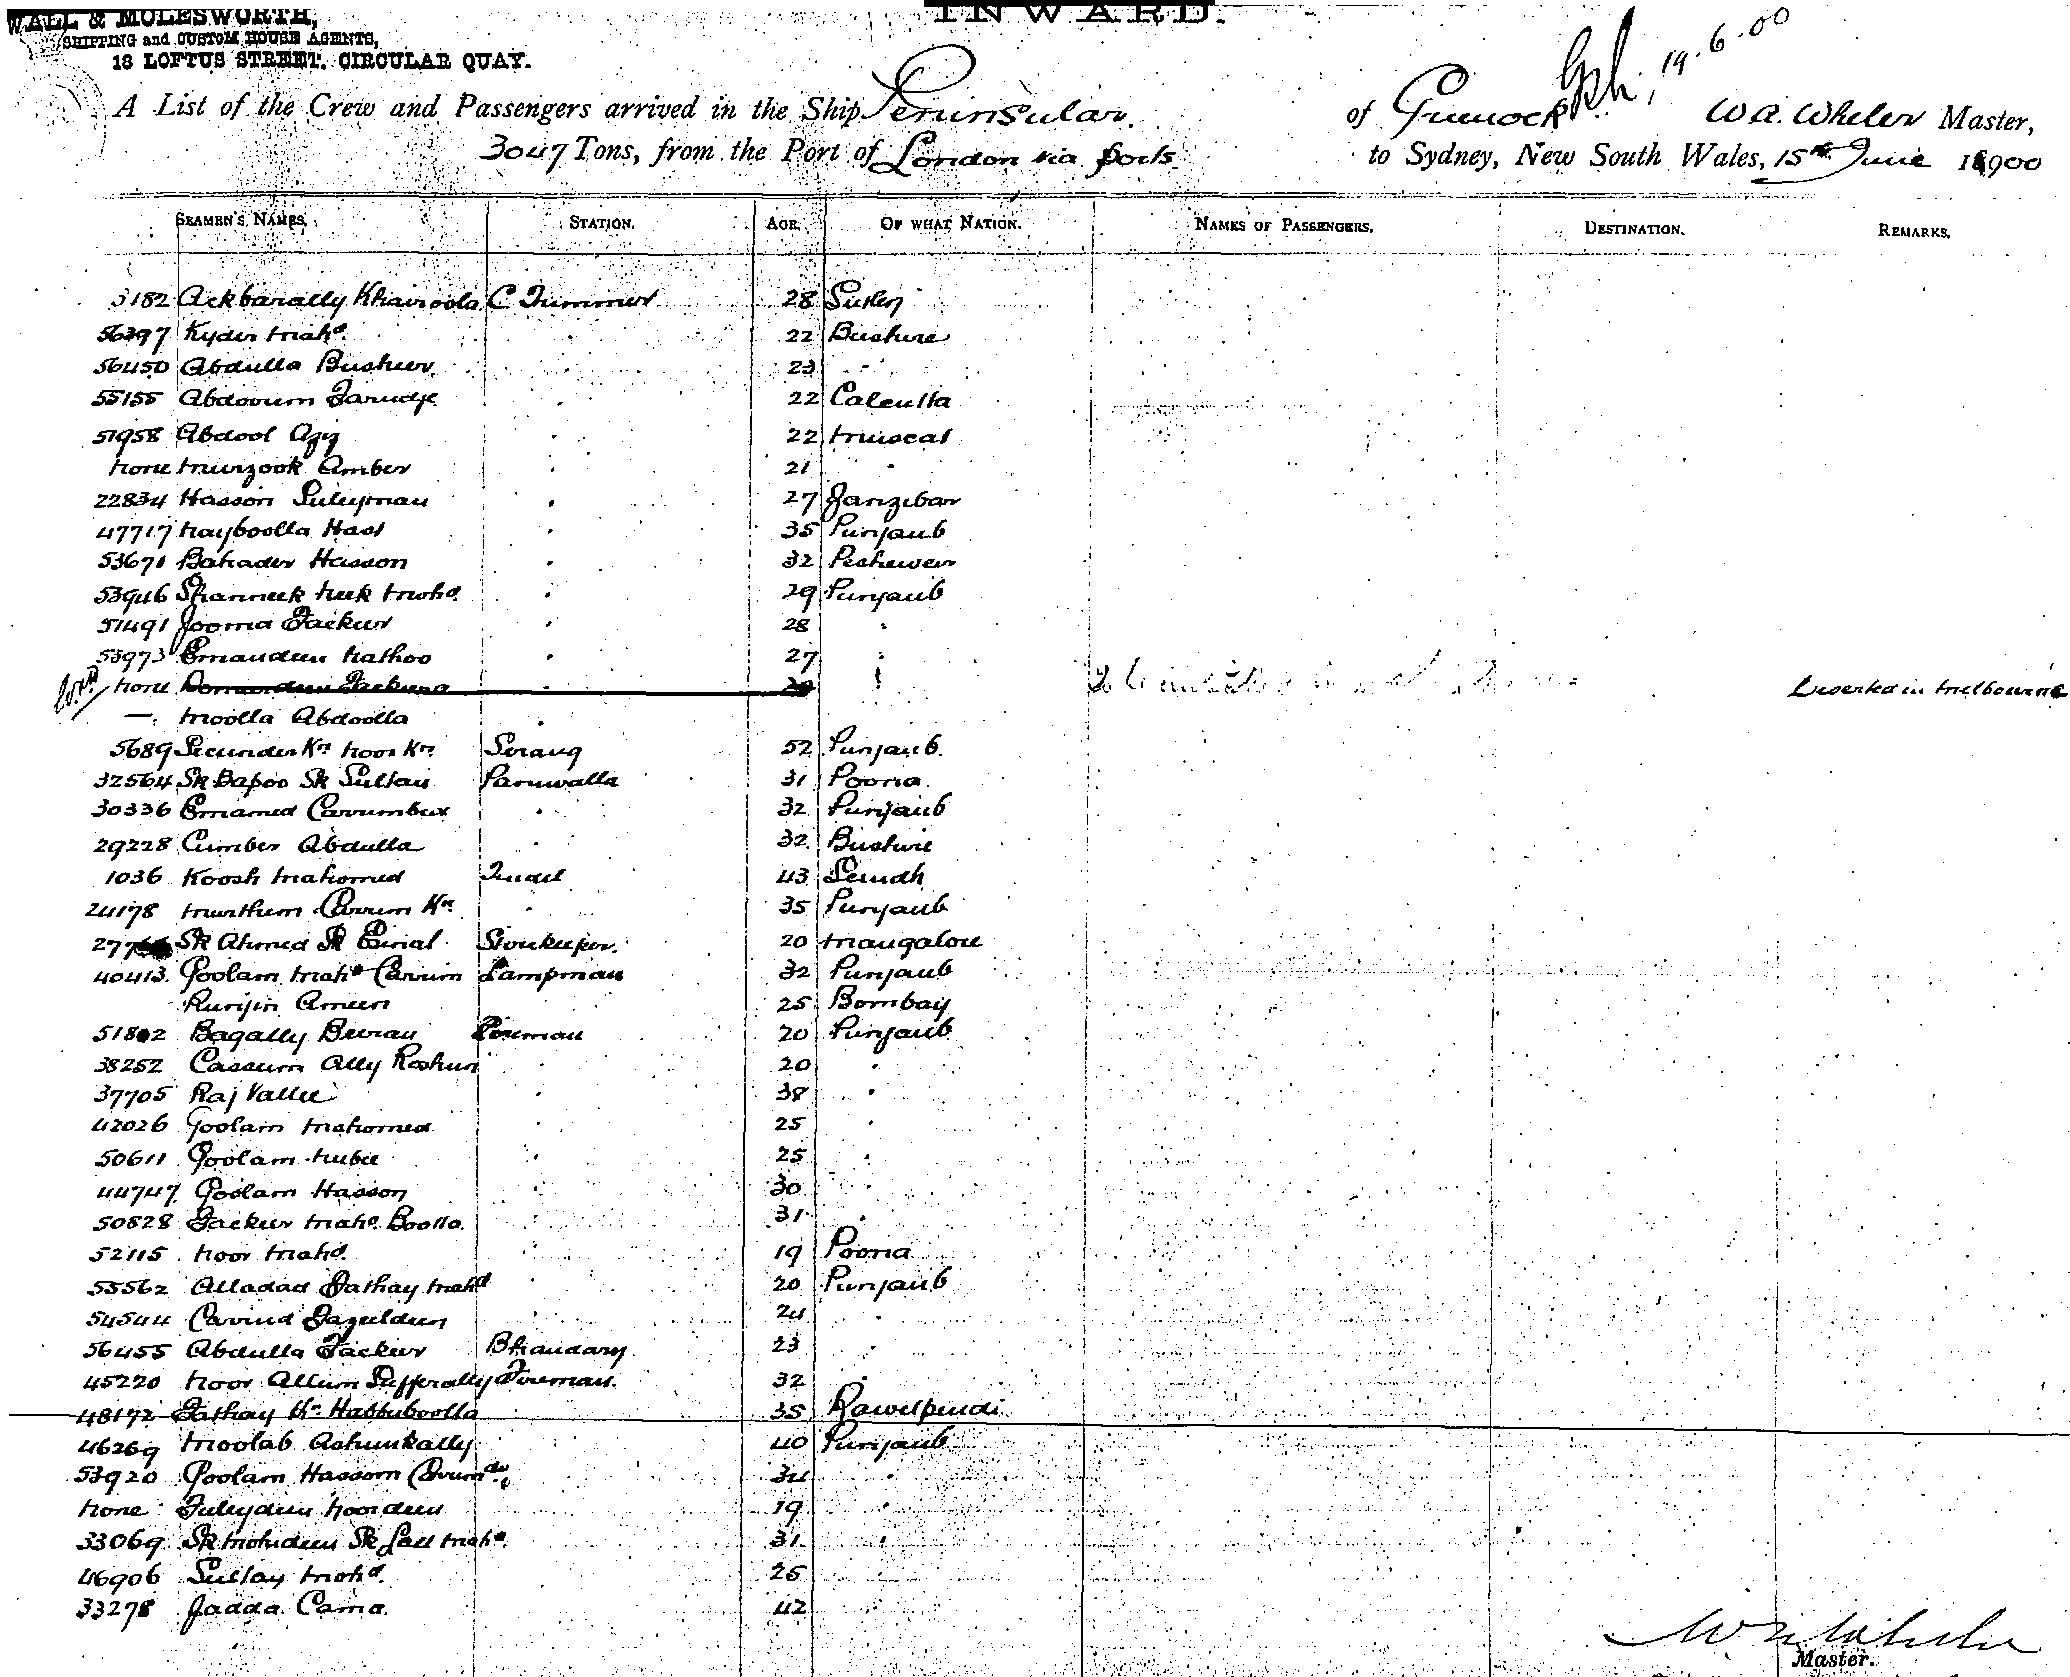 WALL & MOLESWORTH,
SHIPPING and CUSTOM HOUSE AGENTS,
18 LOFTUS STREET, CIRCULAR QUAY.
INWARD.
19.6.00
A List of the Crew and Passengers arrived in the Ship Peninsular of Greenock W.A. Wheler Master,
3047 Tons, from the Port of London via ports to Sydney, New South Wales, 15th June 1900
SEAMEN'S NAMES. STATION. AGE. OF WHAT NATION. NAMES OF PASSENGERS. DESTINATION. REMARKS.
3182 Ackbarally Khairoola C Trimmer 28
56397 Kyder Mahd. 22 Bushire
56450 Abdulla Busheer 23
55155 Abdooum 22 Calcutta
51958 Abdool Aziz 22 Muscat
None Murzook Amber 21
22834 Hasson Suleyman 27 Zanzibar
47717 Nayboolla Hast 35 Punjaub
53671 Bahader Hasson 32 Peshewer
53946 Mohd 29 Punjaub
51491 Jooma Fackeer 28
53973 Emaudeen Nathoo 27
None Deserted in Melbourne
— Moolla Abdoolla
5689 Secunder Kn Noor Kn Serang 52 Punjaub
32564 Sk Bapoo Sk Sultan Paniwalla 31 Poona
30336 Emamed Carrumbux 32 Punjaub
29228 Cumber Abdulla 32 Bushire
1036 Koosh Mahomed Tindel 43 Scindh
24178 Carrum Kn 35 Punjaub
Sk Ahmed Sk Storekeeper 20 Mangalore
40413 Goolam Mahd Carrum Lampman 32 Punjaub
Ameen 25 Bombay
Bagally Fireman 20 Punjaub
38252 Cassum Ally Roshun 20
37705 Raj Vallee 38
42026 Goolam Mahomed 25
50611 Goolam Nubee 25
44747 Goolam Hasson 30
50828 Fackeer Mahd. 31
52115 Noor Mahd 19 Poona
53562 Alladad Fathay Mahd 20 Punjaub
54544 Fazuldeen 24
56455 Abdulla Fackeer Bhandary 23
45220 Noor Allum Fireman 32
48172 Fathay Kn Habbuboolla 35 Rawulpindi
46269 Moolab 40 Punjaub
53920 Goolam Hassom 34
None Noordeen 19
33069 Sk Mohideen Sk Lall Mahd. 31
46906 Mohd. 25
33278 Jadda Cama 42
W A Wheler
Master.